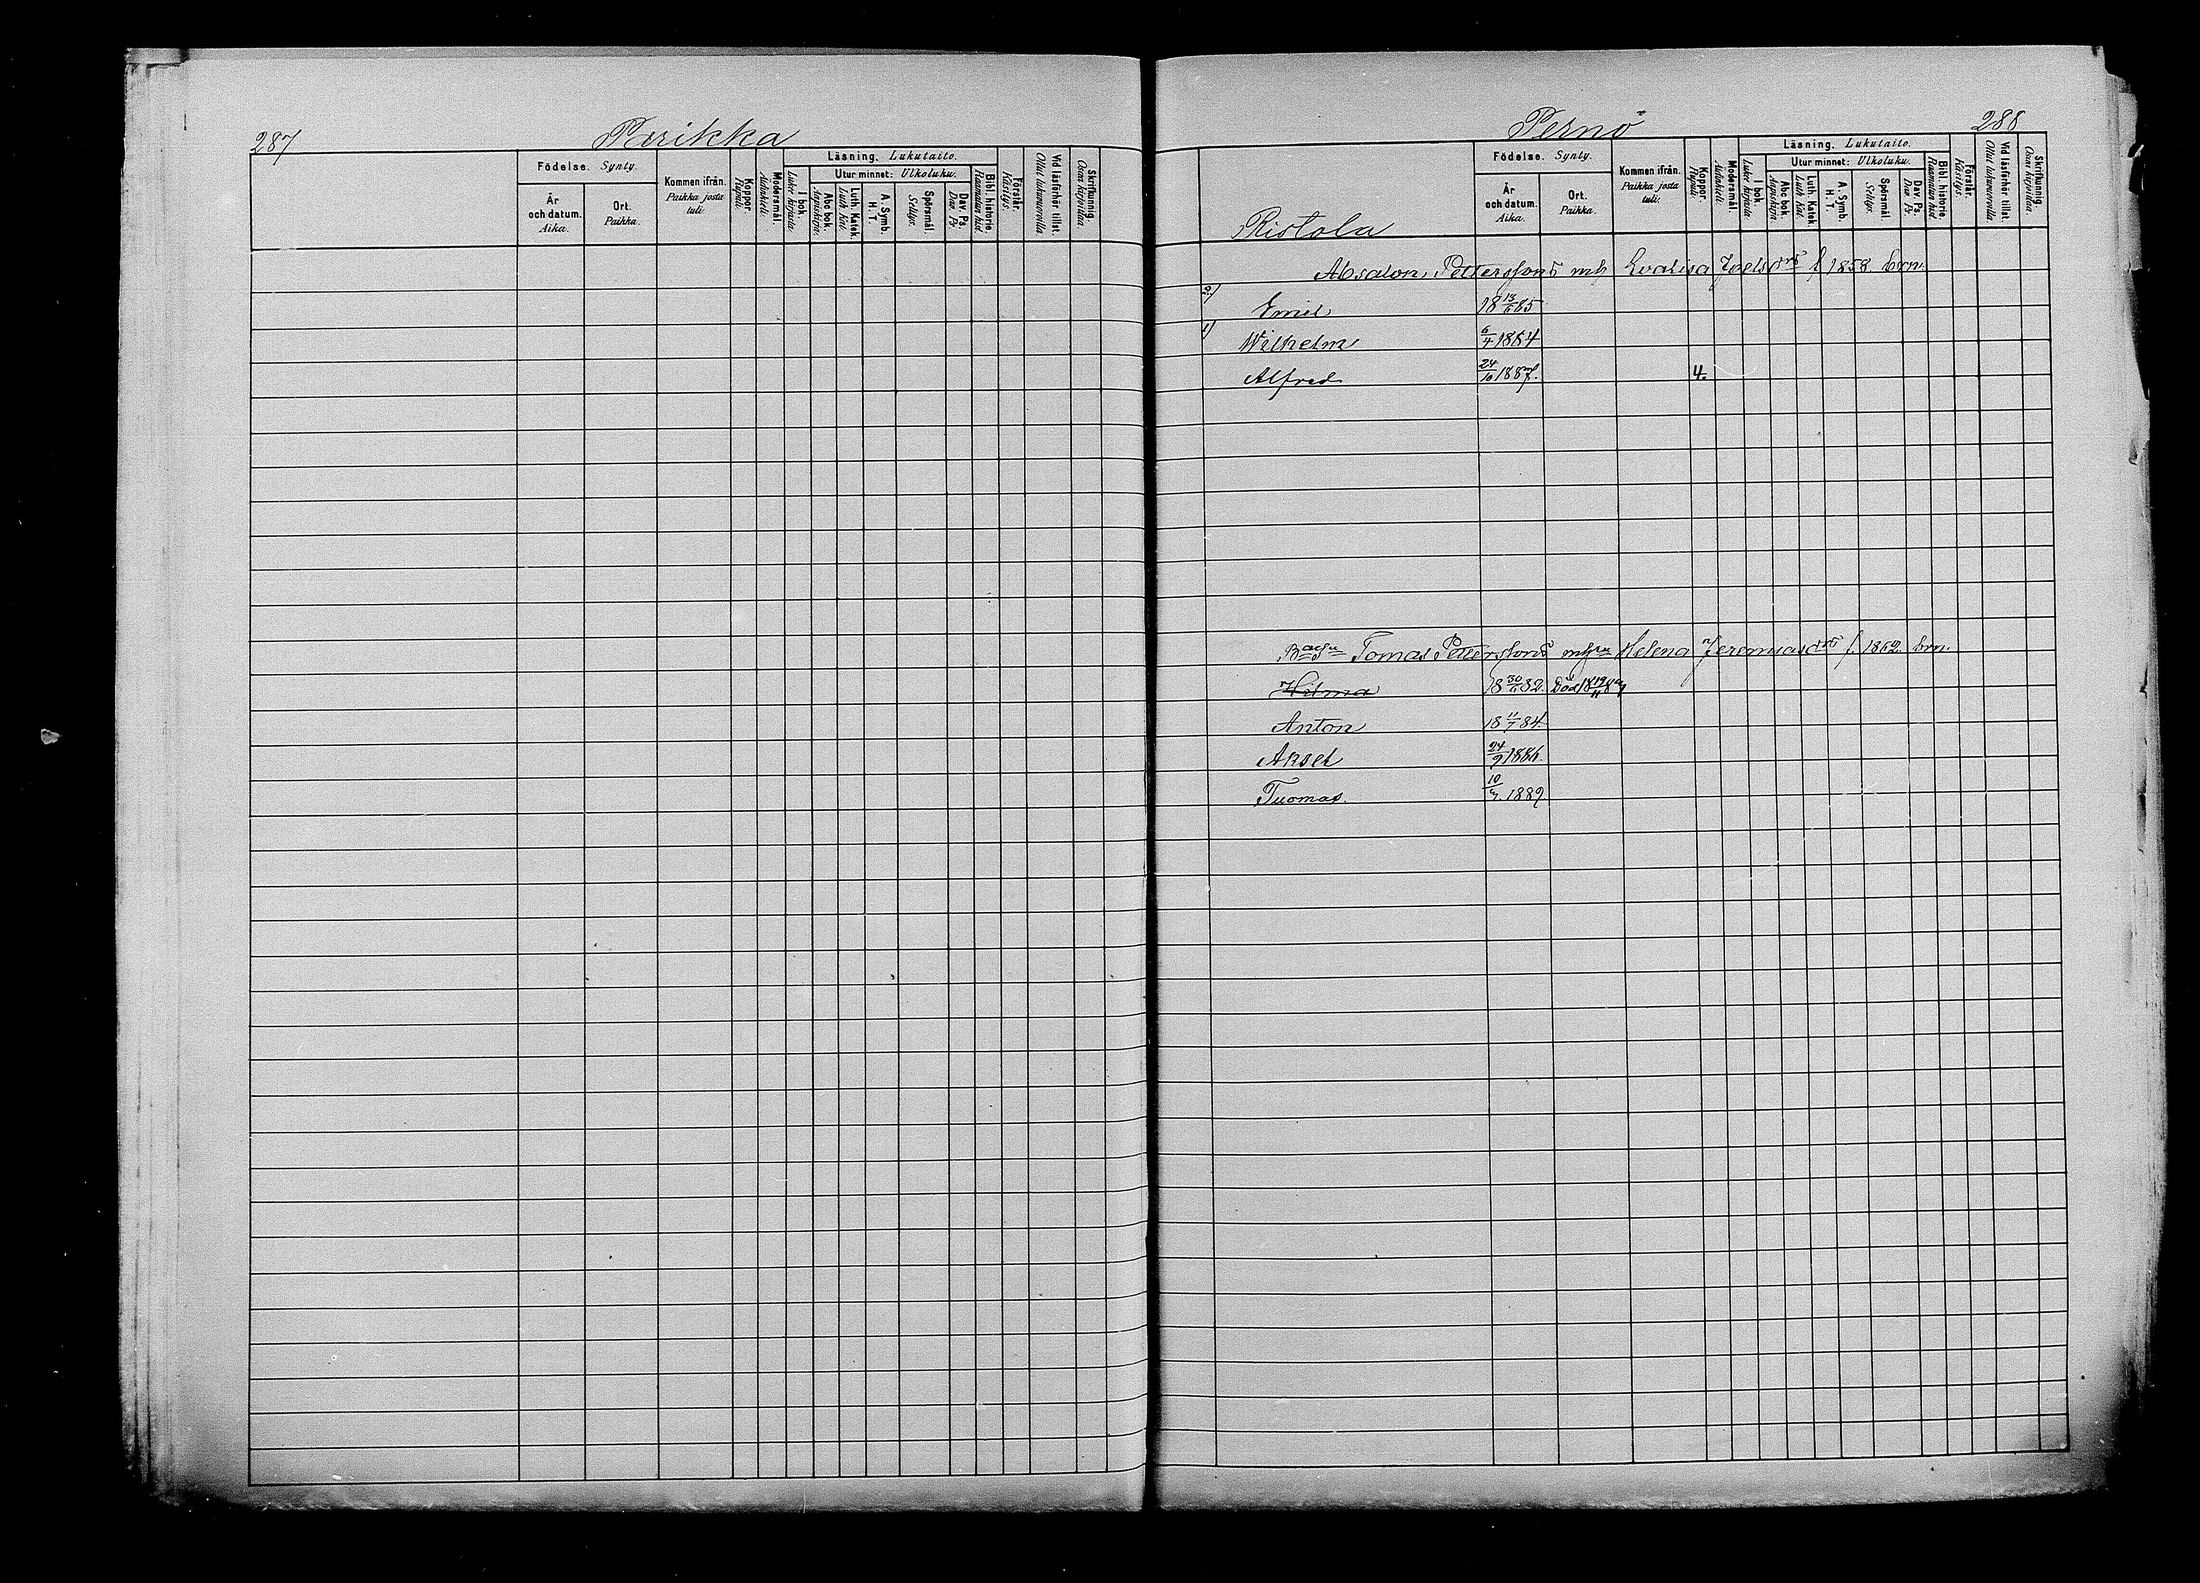 287 Pärikka
Födelse. Synty.
År och datum. Aika.
Ort. Paikka.
Kommen ifrån. Paikka josta tuli.
Koppor. Rupuli.
Modersmål. Äidinkieli.
Läsning. Lukutaito.
I bok. Lukee kirjasta.
Utur minnet: Ulkoluku.
Abc bok. Aapiskirja.
Luth. Katek. Luth Kat.
A. Symb. H. T.
Spörsmål. Selitys.
Dav Ps. Dav Ps.
Bibl. historie. Raamatun hist.
Förstår. Käsitys.
Vid läsförhör tillst. Ollut lukuvuorolla.
Skrifkunnig. Osaa kirjoittaa.
Pernö 288
Födelse. Synty.
År och datum. Aika.
Ort. Paikka.
Kommen ifrån. Paikka josta tuli.
Koppor. Rupuli.
Modersmål. Äidinkieli.
Läsning. Lukutaito.
I bok. Lukee kirjasta.
Utur minnet: Ulkoluku.
Abc bok. Aapiskirja.
Luth. Katek. Luth Kat.
A. Symb. H. T.
Spörsmål. Selitys.
Dav Ps. Dav Ps.
Bibl historie. Raamatun hist
Förstår. Käsitys.
Vid läsförhör tillst. Ollut lukuvuorolla.
Skrifkunnig. Osaa kirjoittaa.
Ristola
Absalon Petterssons mh Evalisa Joelsdrs f 1858 brn.
2) Emil 18 13/6 85
1) Wilhelm 6/4 1884
Alfred 24/10 1887. 4.
Tomas Petterssons Helena Jeremiasdrs f. 1862 brn.
Hilma 18 30/6 82. Död
Anton 18 11/7 84.
Aksel 24/9 1886.
Tuomas. 10/7. 1889